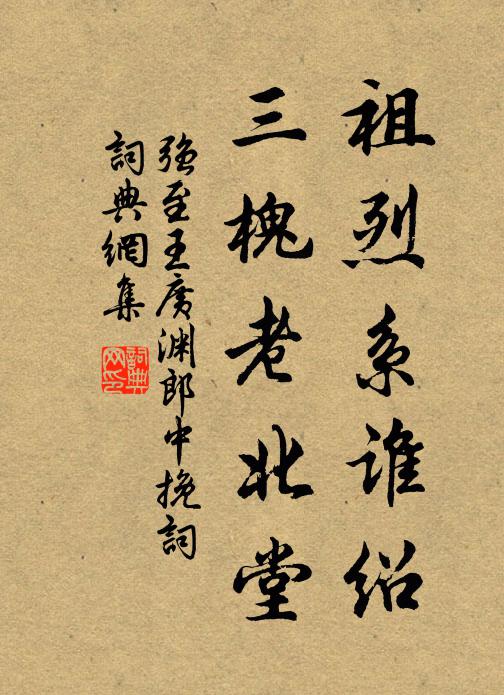 祖烈系谁绍
三槐老北堂
强至王广渊郎中挽词
詞典網集
詞典网印